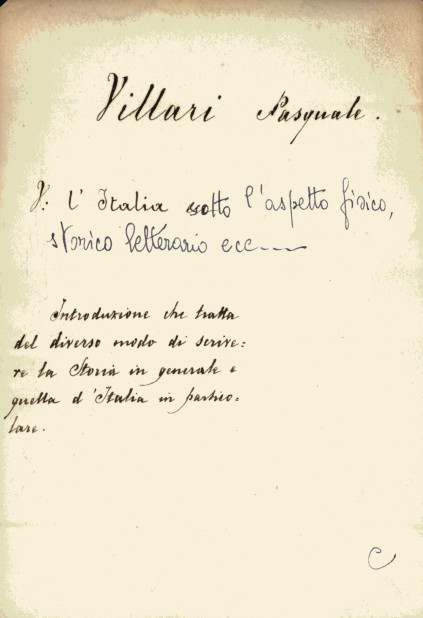 Villari Pasquale.
V: l'Italia sotto l'aspetto fisico,
storico letterario ecc——
Introduzione che tratta
del diverso modo di scrive:
re la Storia in generale e
quella d'Italia in partico=
lare.
C